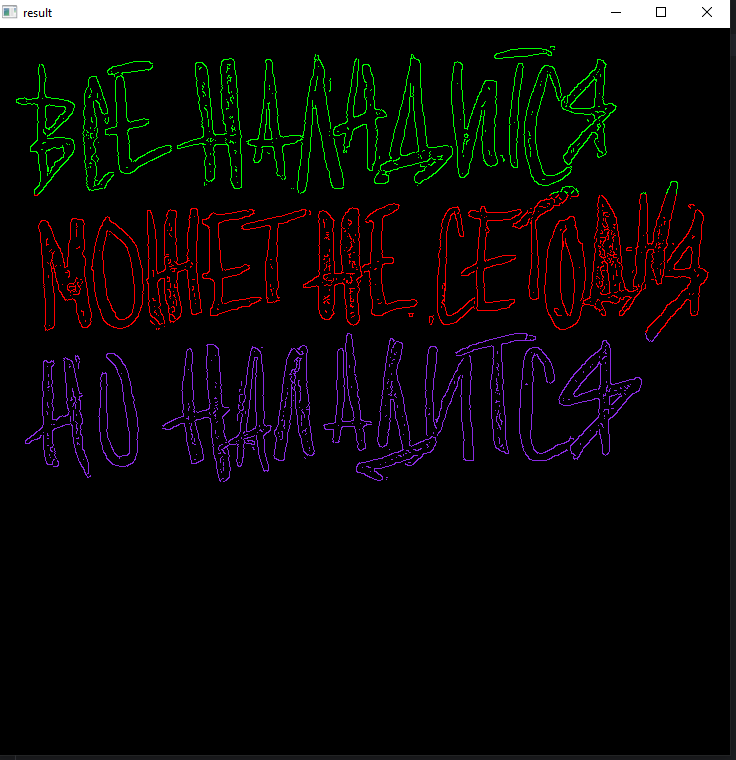 result
ВСЕ НАЛАДИТСЯ
МОЖЕТ НЕ СЕГОДНЯ
НО НАЛАДИТСЯ